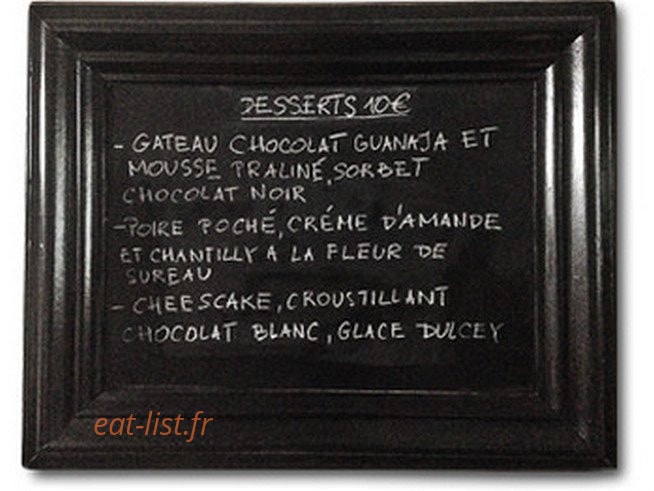 DESSERTS 10€
- GATEAU CHOCOLAT GUANAJA ET
MOUSSE PRALINÉ, SORBET
CHOCOLAT NOIR
- POIRE POCHÉ, CRÉME D'AMANDE
ET CHANTILLY A LA FLEUR DE
SUREAU
- CHEESCAKE, CROUSTILLANT
CHOCOLAT BLANC, GLACE DULCEY
eat-list.fr